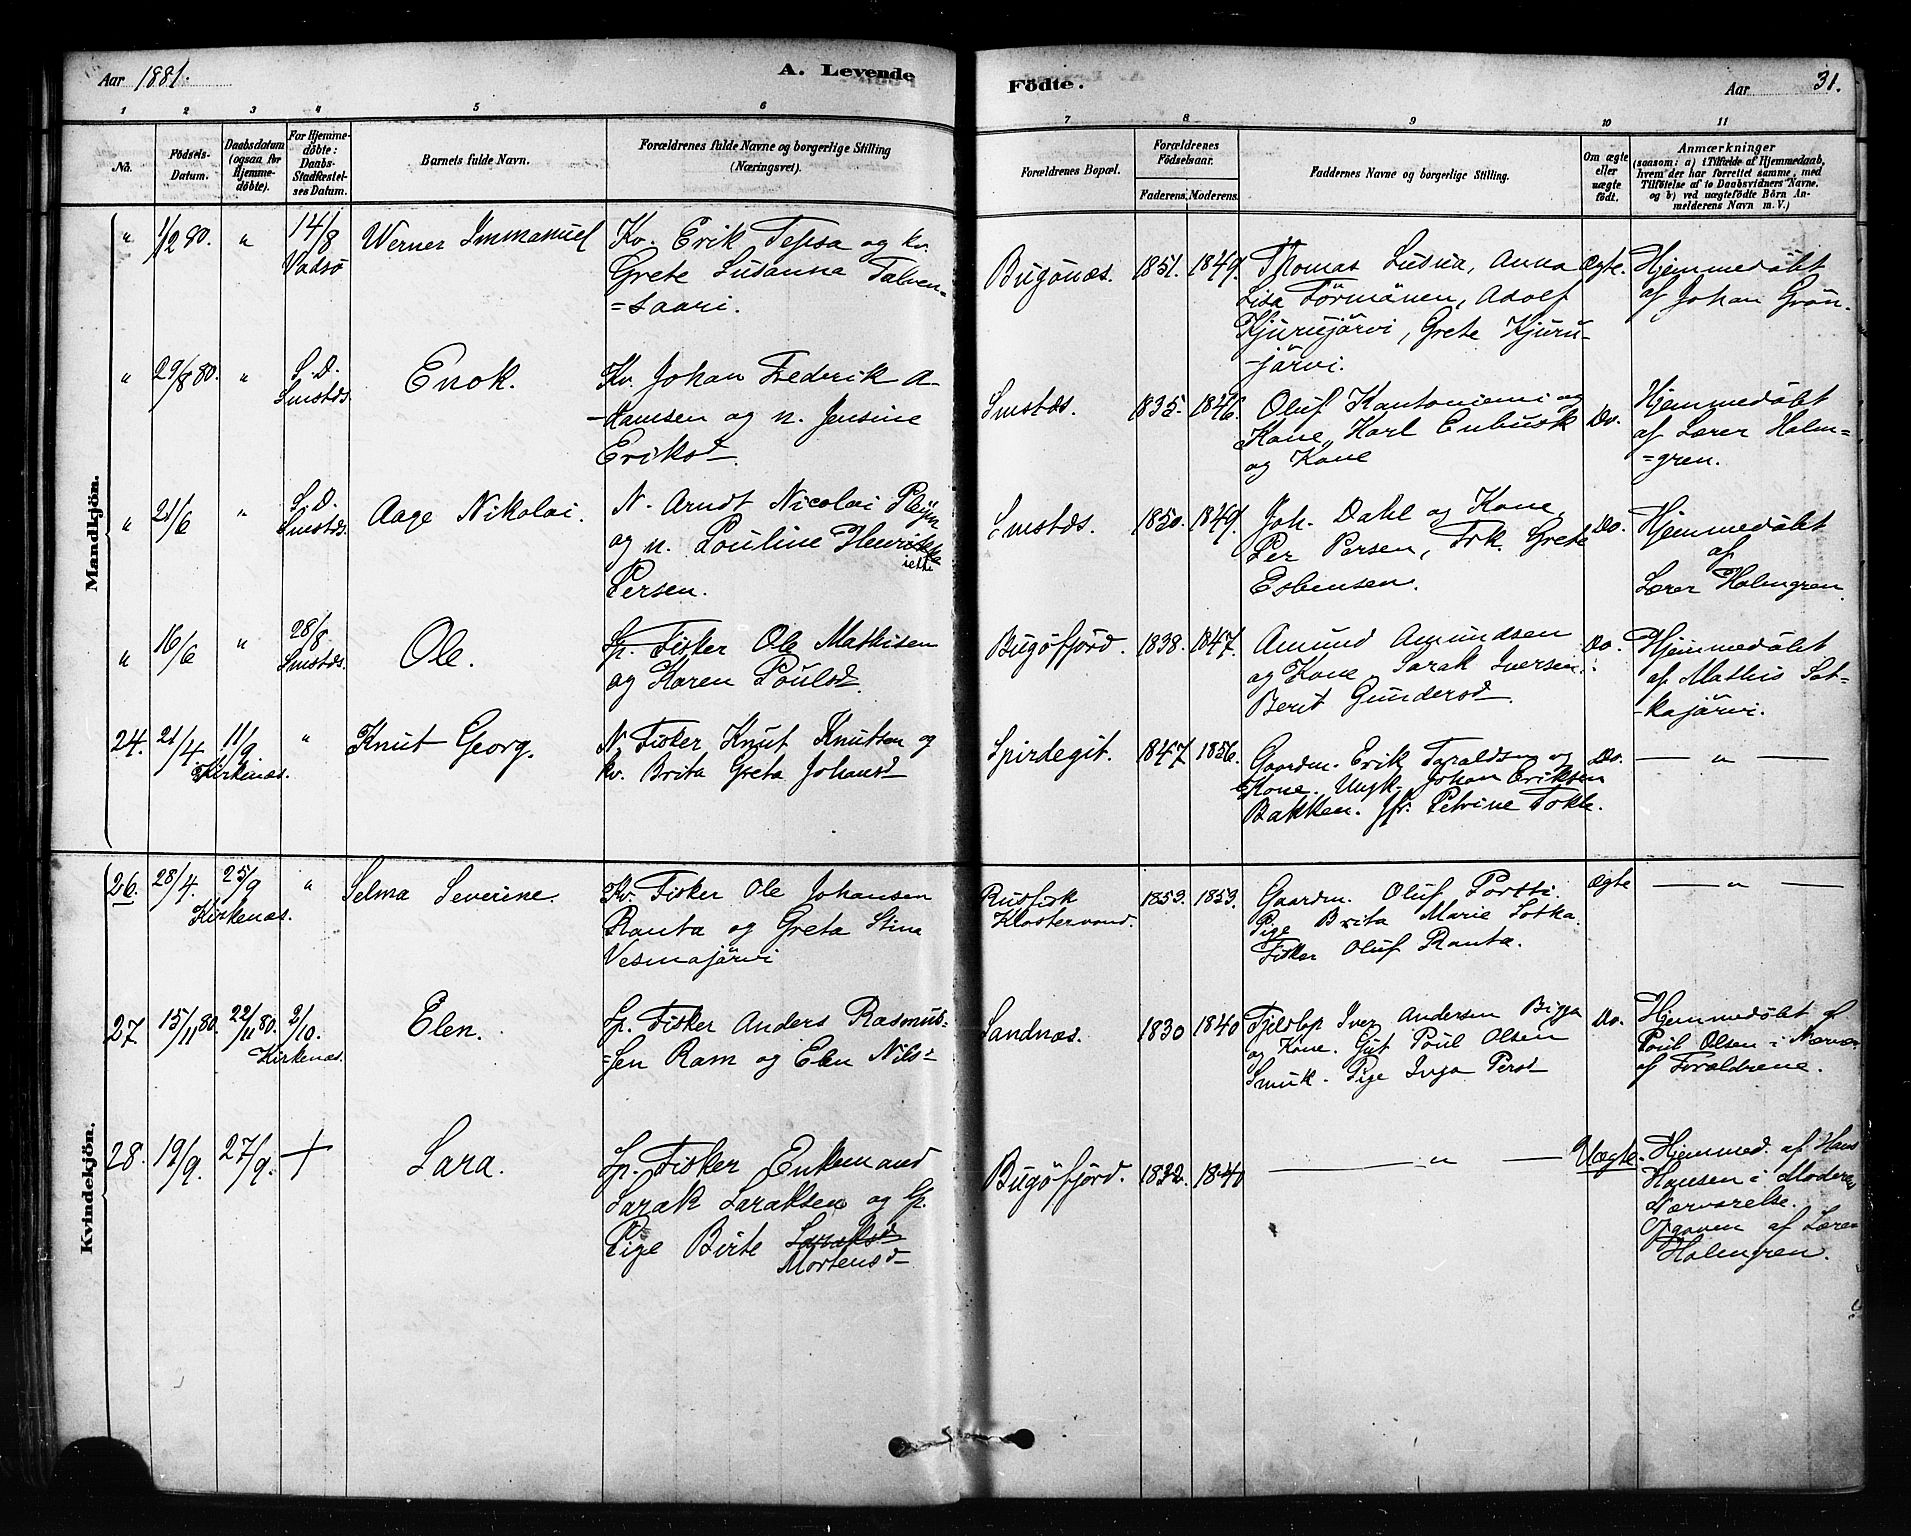 Aar 1881.
A. Levende
Födte.
Aar
31.
1 2 3 4 5 6 7 8 9 10 11
No.
Födsels-
Datum.
Daabsdatum
(ogsaa for
Hjemme-
döbte).
For Hjemme-
döbte:
Daabs-
Stadfæstel-
ses Datum.
Barnets fulde Navn.
Forældrenes fulde Navne og borgerlige Stilling
(Næringsvei).
Forældrenes Bopæl.
Forældrenes
Födselsaar.
Faderens. Moderens.
Faddernes Navne og borgerlige Stilling.
Om ægte
eller
uægte
födt.
Anmærkninger
(saasom: a) i Tilfælde af Hjemmedaab,
hvem der har forrettet samme, med
Tilföielse af to Daabsvidners Navne.
og b) ved uægtefödte Börn An-
melderens Navn m. V.)
Mandkjön.
" 1/2 80. " 14/8
Vadsö
Werner Immanuel
Kv. Erik Tepsa og kv.
Grete Susanna Talven-
=saari.
Bugönæs. 1851. 1849.
Thomas Anna
Lisa Törmänen, Adolf
Kjurujärvi, Grete Kjuru-
-järvi.
Ægte.
Hjemmedöbt
af Johan Grön-
" 29/8 80. " S.D.
Smstds.
Enok.
Kv. Johan Frederik A-
-damsen og n. Jensine
Eriksd.
Smstds. 1835. 1846.
Oluf Kantoniemi og
Kone, Karl Enbusk
og Kone
Do.
Hjemmedöbt
af Lærer Holm=
=gren.
" 21/6 " S.D.
Smstds.
Aage Nikolai.
N. Arndt Nicolai Pleym
og n. Pouline
Persen.
Smstds. 1850. 1849.
Joh. Dahl og Kone,
Per Persen, Frk. Grete
Esbensen.
Do.
Hjemmedöbt
af
Lærer Holmgren.
" 16/6 " 28/8
Smstds.
Ole.
Lp. Fisker Ole Mathisen
og Karen Poulsd.
Bugöfjord. 1838. 1847.
Amund Amundsen
og Kone, Sarak Iversen,
Berit Gundersd
Do.
Hjemmedöbt
af Mathis Sot-
-kajärvi.
24. 21/4 11/9 "
Kirkenæs.
Knut Georg.
N. Fisker Knut Knutsen og
kv. Brita Greta Johansd
Spirdegit. 1847 1856.
Gaardm. Erik Taraldsen og
Kone. Ungk. Johan Eriksen
Bakken. Jfr. Petrine Tokle.
Do.
— " —
Kvindekjön.
26. 28/4. 25/9 "
Kirkenæs.
Selma Severine.
Kv. Fisker Ole Johansen
Ranta og Greta Stina
Vesmajärvi
Klostervand. 1853. 1853.
Gaardm. Oluf Porsti
Pige Brita Marie Sotka.
Fisker Oluf Ranta.
Ægte
— " —
27 15/11 80. 22/11 80. 2/10.
Kirkenæs.
Elen.
Lp. Fisker Anders Rasmus=
=sen Ram og Elen Nilsd
Sandnæs. 1830 1840
Fjeldlap Iver Andersen Bigga
og Kone. Gut Poul Olsen
Smuk. Pige Inga Persd
Do.
Hjemmedöbt af
Poul Olsen i Nærvær
af Forældrene.
28. 19/9. 27/9. +
Sara.
Lp. Fisker Enkemand
Sarak Saraksen og Lp.
Pige Birte Saraksd
Mortensd
Bugöfjord. 1832. 1840
— " —
Uægte.
Hjemmed. af Hans
Hansen i Moderens
Nærværelse.
Opgaven af Lærer
Holmgren.